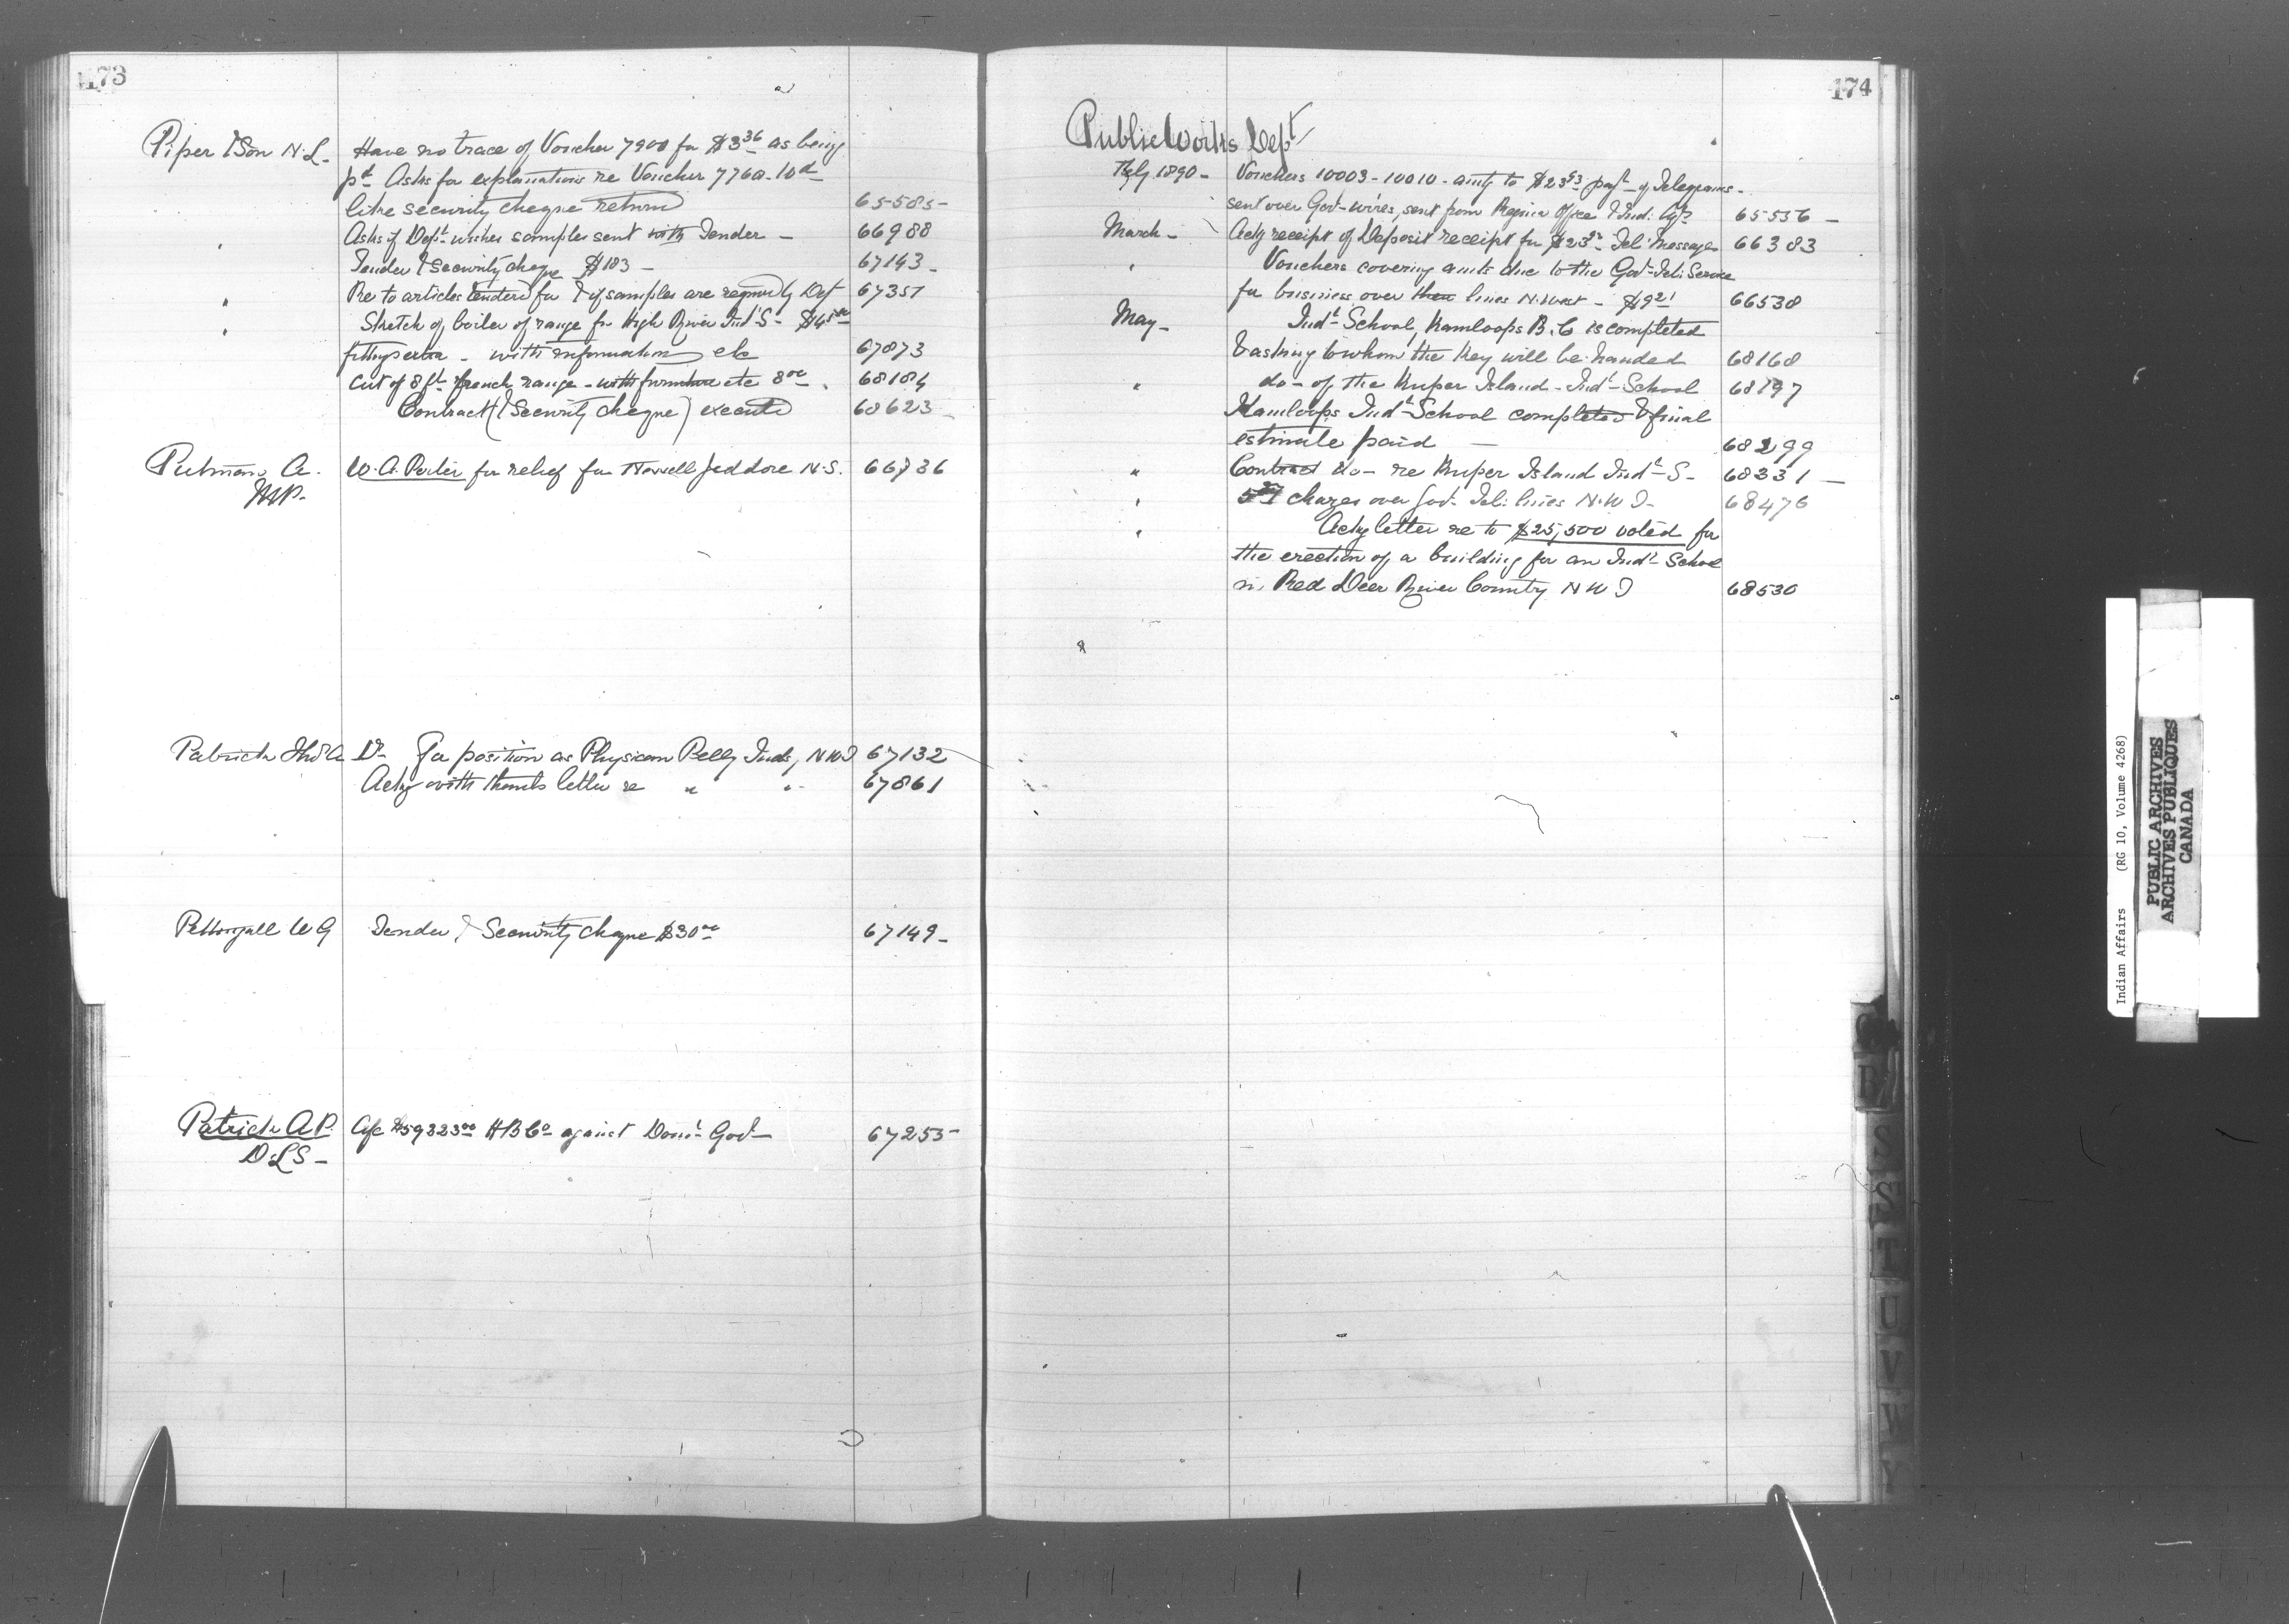 173
Piper & Son N.L. Have no trace of Voucher 7900 for $3 36 as being
pd Asks for explanations re Voucher 7760
like security cheque return 65585
" Asks if Dept wishes samples sent with Tender 66988
Tender & Security cheque $103 67143
" Re to articles tendered for & if samples are required by Dept 67351
" Sketch of boiler of range for High River Indl S
with information etc 67873
Cut of 8 ft french range - with furniture etc 68184
Contract (& Security cheque) executed 68623
Putman A. W. A. Porter for relief for Jeddore N.S. 66736
M.P.
Patrick A Dr for position as Physician Pelly Inds, N W T 67132
Ackg with thanks letter re " " 67861
Pettingall W G Tender & Security cheque $30 00 67149
Patrick A. P. H B Co against Domn Govt 67255
D.L.S.
174
Public Works Dept
Feby 1890 Vouchers 10003 - 10010 - amtg to payt of Telegrams
sent over Govt wires, sent from Regina Office & Ind. Agts 65556
March Ackg receipt of Deposit receipt for Tel: Messages 66383
" Vouchers covering amts due to the Govt Tel: Service
for business over their lines N. West - $9 21 66538
May Indl School, Kamloops B.C is completed
& asking to whom the Key will be handed 68168
" do - of the Kuper Island Indl School 68197
Kamloops Indl School completed & final
estimate paid 68299
" Contract do - re Kuper Island Indl S 68331
" charges over Govt Tel: lines N.W T 68476
" Ackg letter re to $25,500 voted for
the erection of a building for an Indl School
in Red Deer River County N W T 68530
S
S
T
U
V
W
Y
Indian Affairs (RG 10, Volume 4268)
PUBLIC ARCHIVES
ARCHIVES PUBLIQUES
CANADA